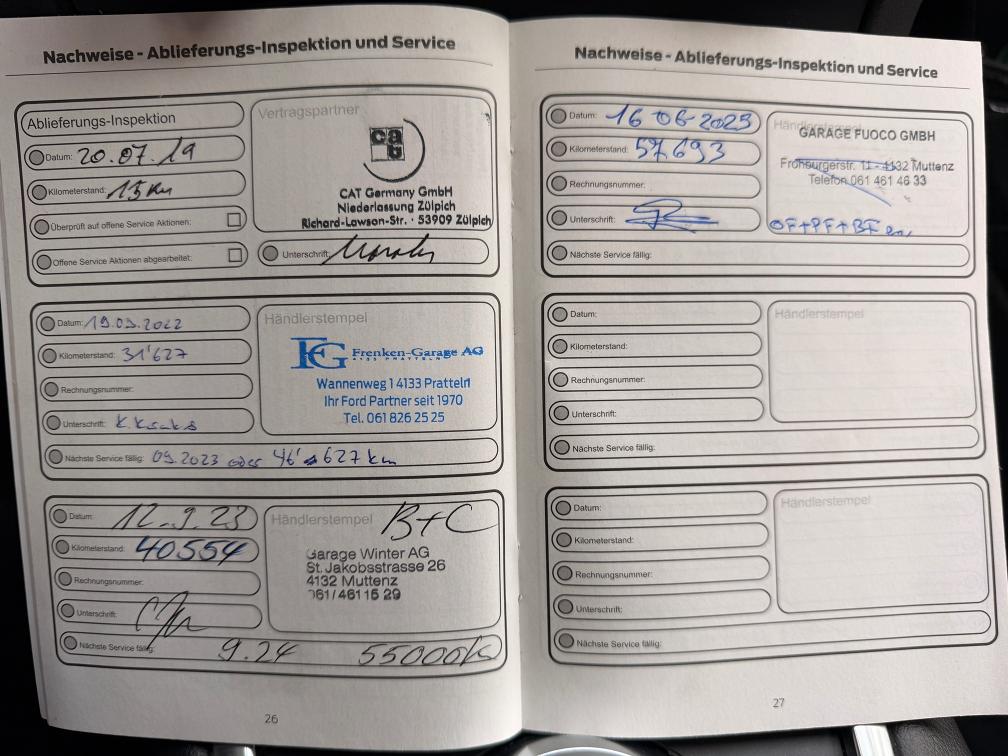 Nachweise - Ablieferungs-Inspektion und Service
Ablieferungs-Inspektion
Datum: 20.07.19
Kilometerstand: 15 Km
Überprüft auf offene Service Aktionen:
Offene Service Aktionen abgearbeitet:
Vertragspartner
CAT Germany GmbH
Niederlassung Zülpich
Richard-Lawson-Str. · 53909 Zülpich
Unterschrift:
Datum: 19.09.2022
Kilometerstand: 31'627
Rechnungsnummer:
Unterschrift:
Händlerstempel
FG Frenken-Garage AG
4133 PRATTELN
Wannenweg 1 4133 Pratteln
Ihr Ford Partner seit 1970
Tel. 061 826 25 25
Nächste Service fällig: 09.2023 oder 46' 627 km
Datum: 12.9.23
Kilometerstand: 40554
Rechnungsnummer:
Unterschrift:
Händlerstempel B+C
Garage Winter AG
St. Jakobsstrasse 26
4132 Muttenz
061/461 15 29
Nächste Service fällig: 9.24 55000k
26
Nachweise - Ablieferungs-Inspektion und Service
Datum: 16 06-2025
Kilometerstand: 57.693
Rechnungsnummer:
Unterschrift:
Händlerstempel
GARAGE FUOCO GMBH
Frohburgerstr. 11 - 4132 Muttenz
Telefon 061 461 46 33
OF+PF+BF
Nächste Service fällig:
Datum:
Kilometerstand:
Rechnungsnummer:
Unterschrift:
Händlerstempel
Nächste Service fällig:
Datum:
Kilometerstand:
Rechnungsnummer:
Unterschrift:
Händlerstempel
Nächste Service fällig:
27